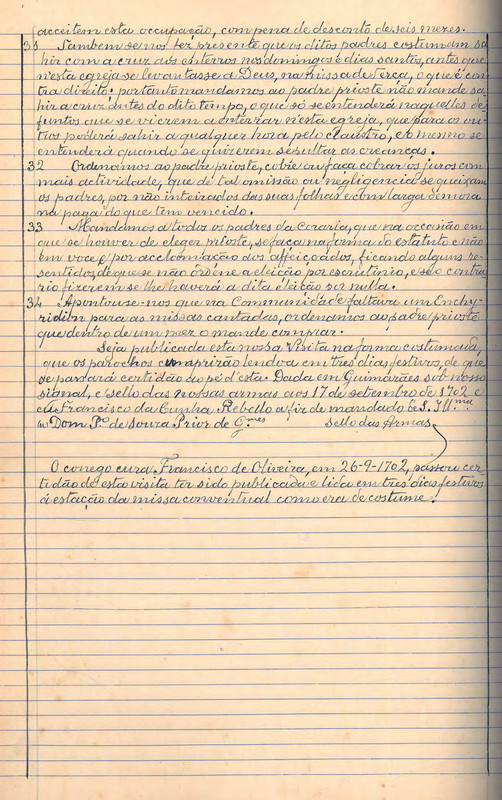 acceitem esta occupação, com pena de desconto de seis mezes.
31 Tambem se nos fez presente que os ditos padres costumam sa
hir com a cruz aos enterros nos domingos e dias santos, antes que
n'esta egreja se levantasse a Deus, na Missa de Terça, o que é con
tra direito; portanto mandamos ao padre prioste não mande sa
hir a cruz antes do dito tempo, o que só se entenderá naquelles de
funtos que se vierem a enterrar n'esta egreja, que para os ou
tros poderá sahir a qualquer hora pelo claustro, e o mesmo se
entenderá quando se quizerem sepultar as creanças.
32 Ordenamos ao padre prioste, cobre ou faça cobrar os juros com
mais actividade, que de tal omissão ou negligencia se queixam
os padres, por não inteirados das suas folhas e com larga demora
na paga do que tem vencido.
33 Mandamos a todos os padres da Coraria, que na occasião em
que se houver de eleger prioste, se faça na forma do estatuto e não
em voce e por acclamação dos affeiçoados, ficando alguns re
sentidos, de que se não ordene a eleição por escrutinio, e se o contra
rio fizerem se lhe haverá a dita eleição por nulla.
34 Apontou-se-nos que na Communidade faltava um Enchy-
ridion para as missas cantadas, ordenamos ao padre prioste
que dentro de um mez o mande comprar.
Seja publicada esta nossa Visita na forma costumada,
que os parochos cumprirão lendo-a em tres dias festivos, de que
se passará certidão ao pé d'esta. Dada em Guimarães sob nosso
signal, e sello das nossas armas aos 17 de setembro de 1702 e
eu Francisco da Cunha Rebello a fiz de mandado de S. Ill.ma
(a) Dom P.o de Souza Prior de G.es Sello das Armas
O conego cura, Francisco de Oliveira, em 26-9-1702, passou cer
tidão de esta visita ter sido publicada e lida em tres dias festivos
á estação da missa conventual como era de costume.